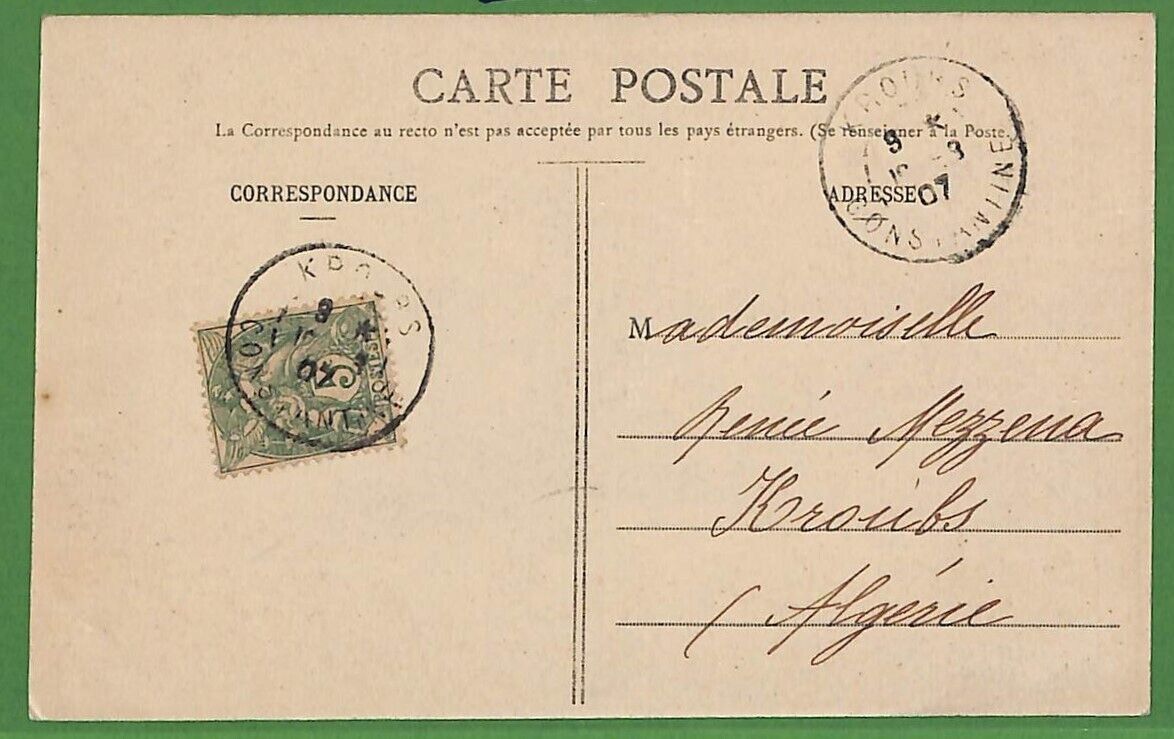 CARTE POSTALE
La Correspondance au recto n'est pas acceptée par tous les pays étrangers. (Se renseigner à la Poste.
CORRESPONDANCE
ADRESSE
KROUBS
CONSTANTINE
07
KROUBS
CONSTANTINE
07
5
POSTES
Mademoiselle
Renée Mezzena
Kroubs
(Algérie